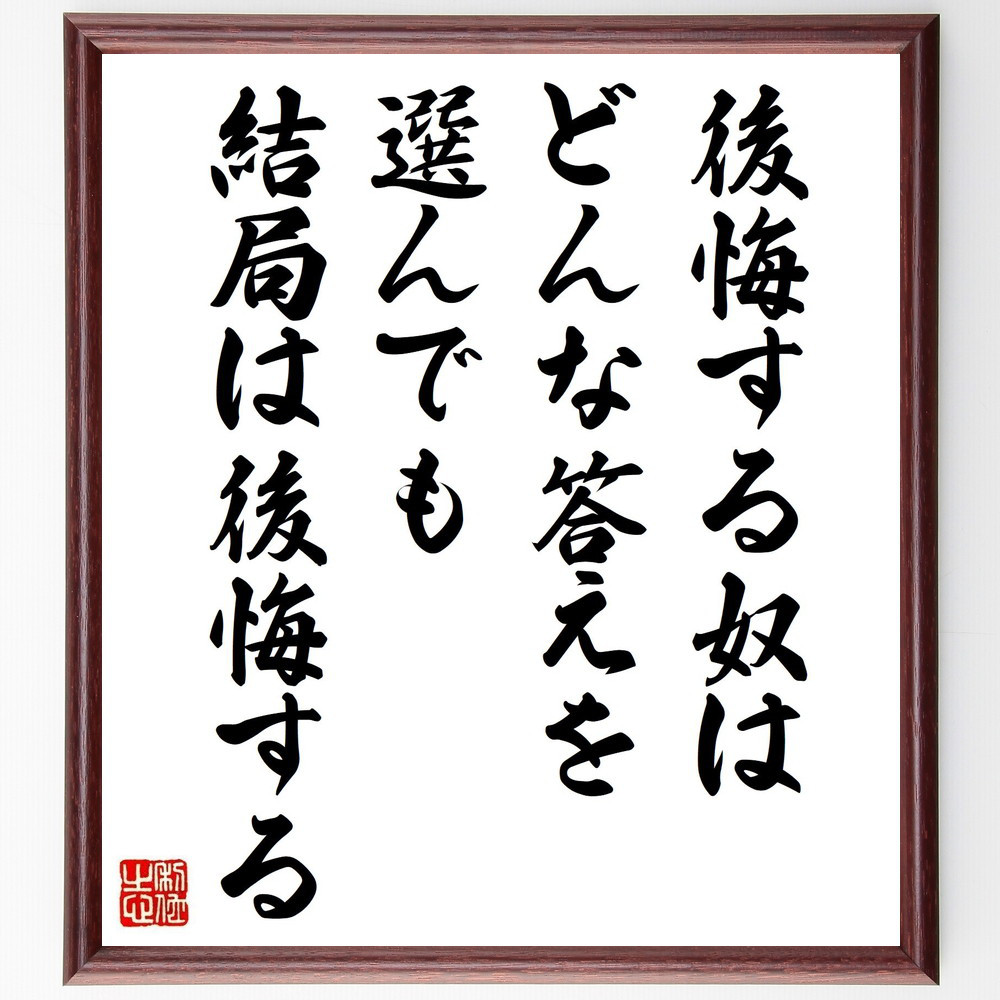 後悔する奴は
どんな答えを
選んでも
結局は後悔する